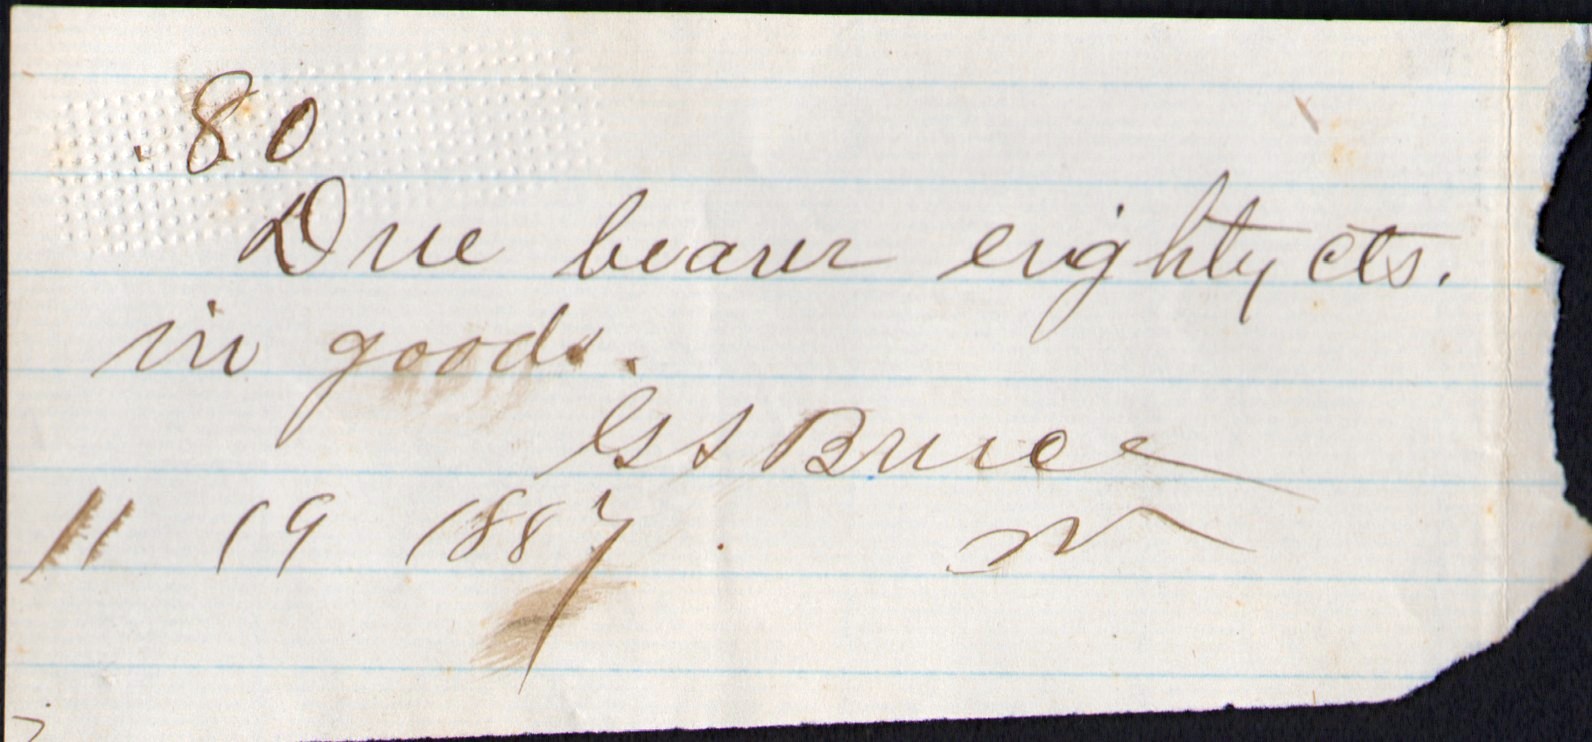 .80
Due bearer eighty cts.
in goods.
GS Bruce
11 19 1887